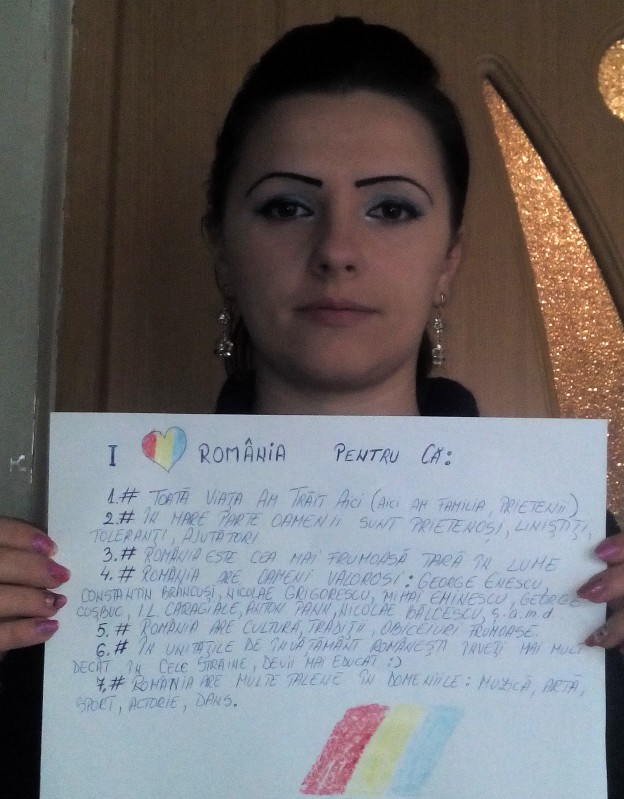 I ROMÂNIA PENTRU CĂ:
1.# TOATĂ VIAȚA AM TRĂIT AICI (AICI AM FAMILIA, PRIETENII)
2.# ÎN MARE PARTE OAMENII SUNT PRIETENOȘI, LINIȘTIȚI,
TOLERANȚI, AJUTĂTORI
3.# ROMÂNIA ESTE CEA MAI FRUMOASĂ ȚARĂ ÎN LUME
4.# ROMÂNIA ARE OAMENII VALOROȘI: GEORGE ENESCU,
CONSTANTIN BRÂNCUȘI, NICOLAE GRIGORESCU, MIHAI EMINESCU, GEORGE
COȘBUC, I.L. CARAGIALE, ANTON PANN, NICOLAE BĂLCESCU, Ș.A.M.D.
5.# ROMÂNIA ARE CULTURĂ, TRADIȚII, OBICEIURI FRUMOASE.
6.# ÎN UNITĂȚILE DE ÎNVĂȚĂMÂNT ROMÂNEȘTI ÎNVEȚI MAI MULT
DECÂT ÎN CELE STRĂINE, DEVII MAI EDUCAT :)
7.# ROMÂNIA ARE MULTE TALENTE ÎN DOMENIILE: MUZICĂ, ARTĂ,
SPORT, ACTORIE, DANS.